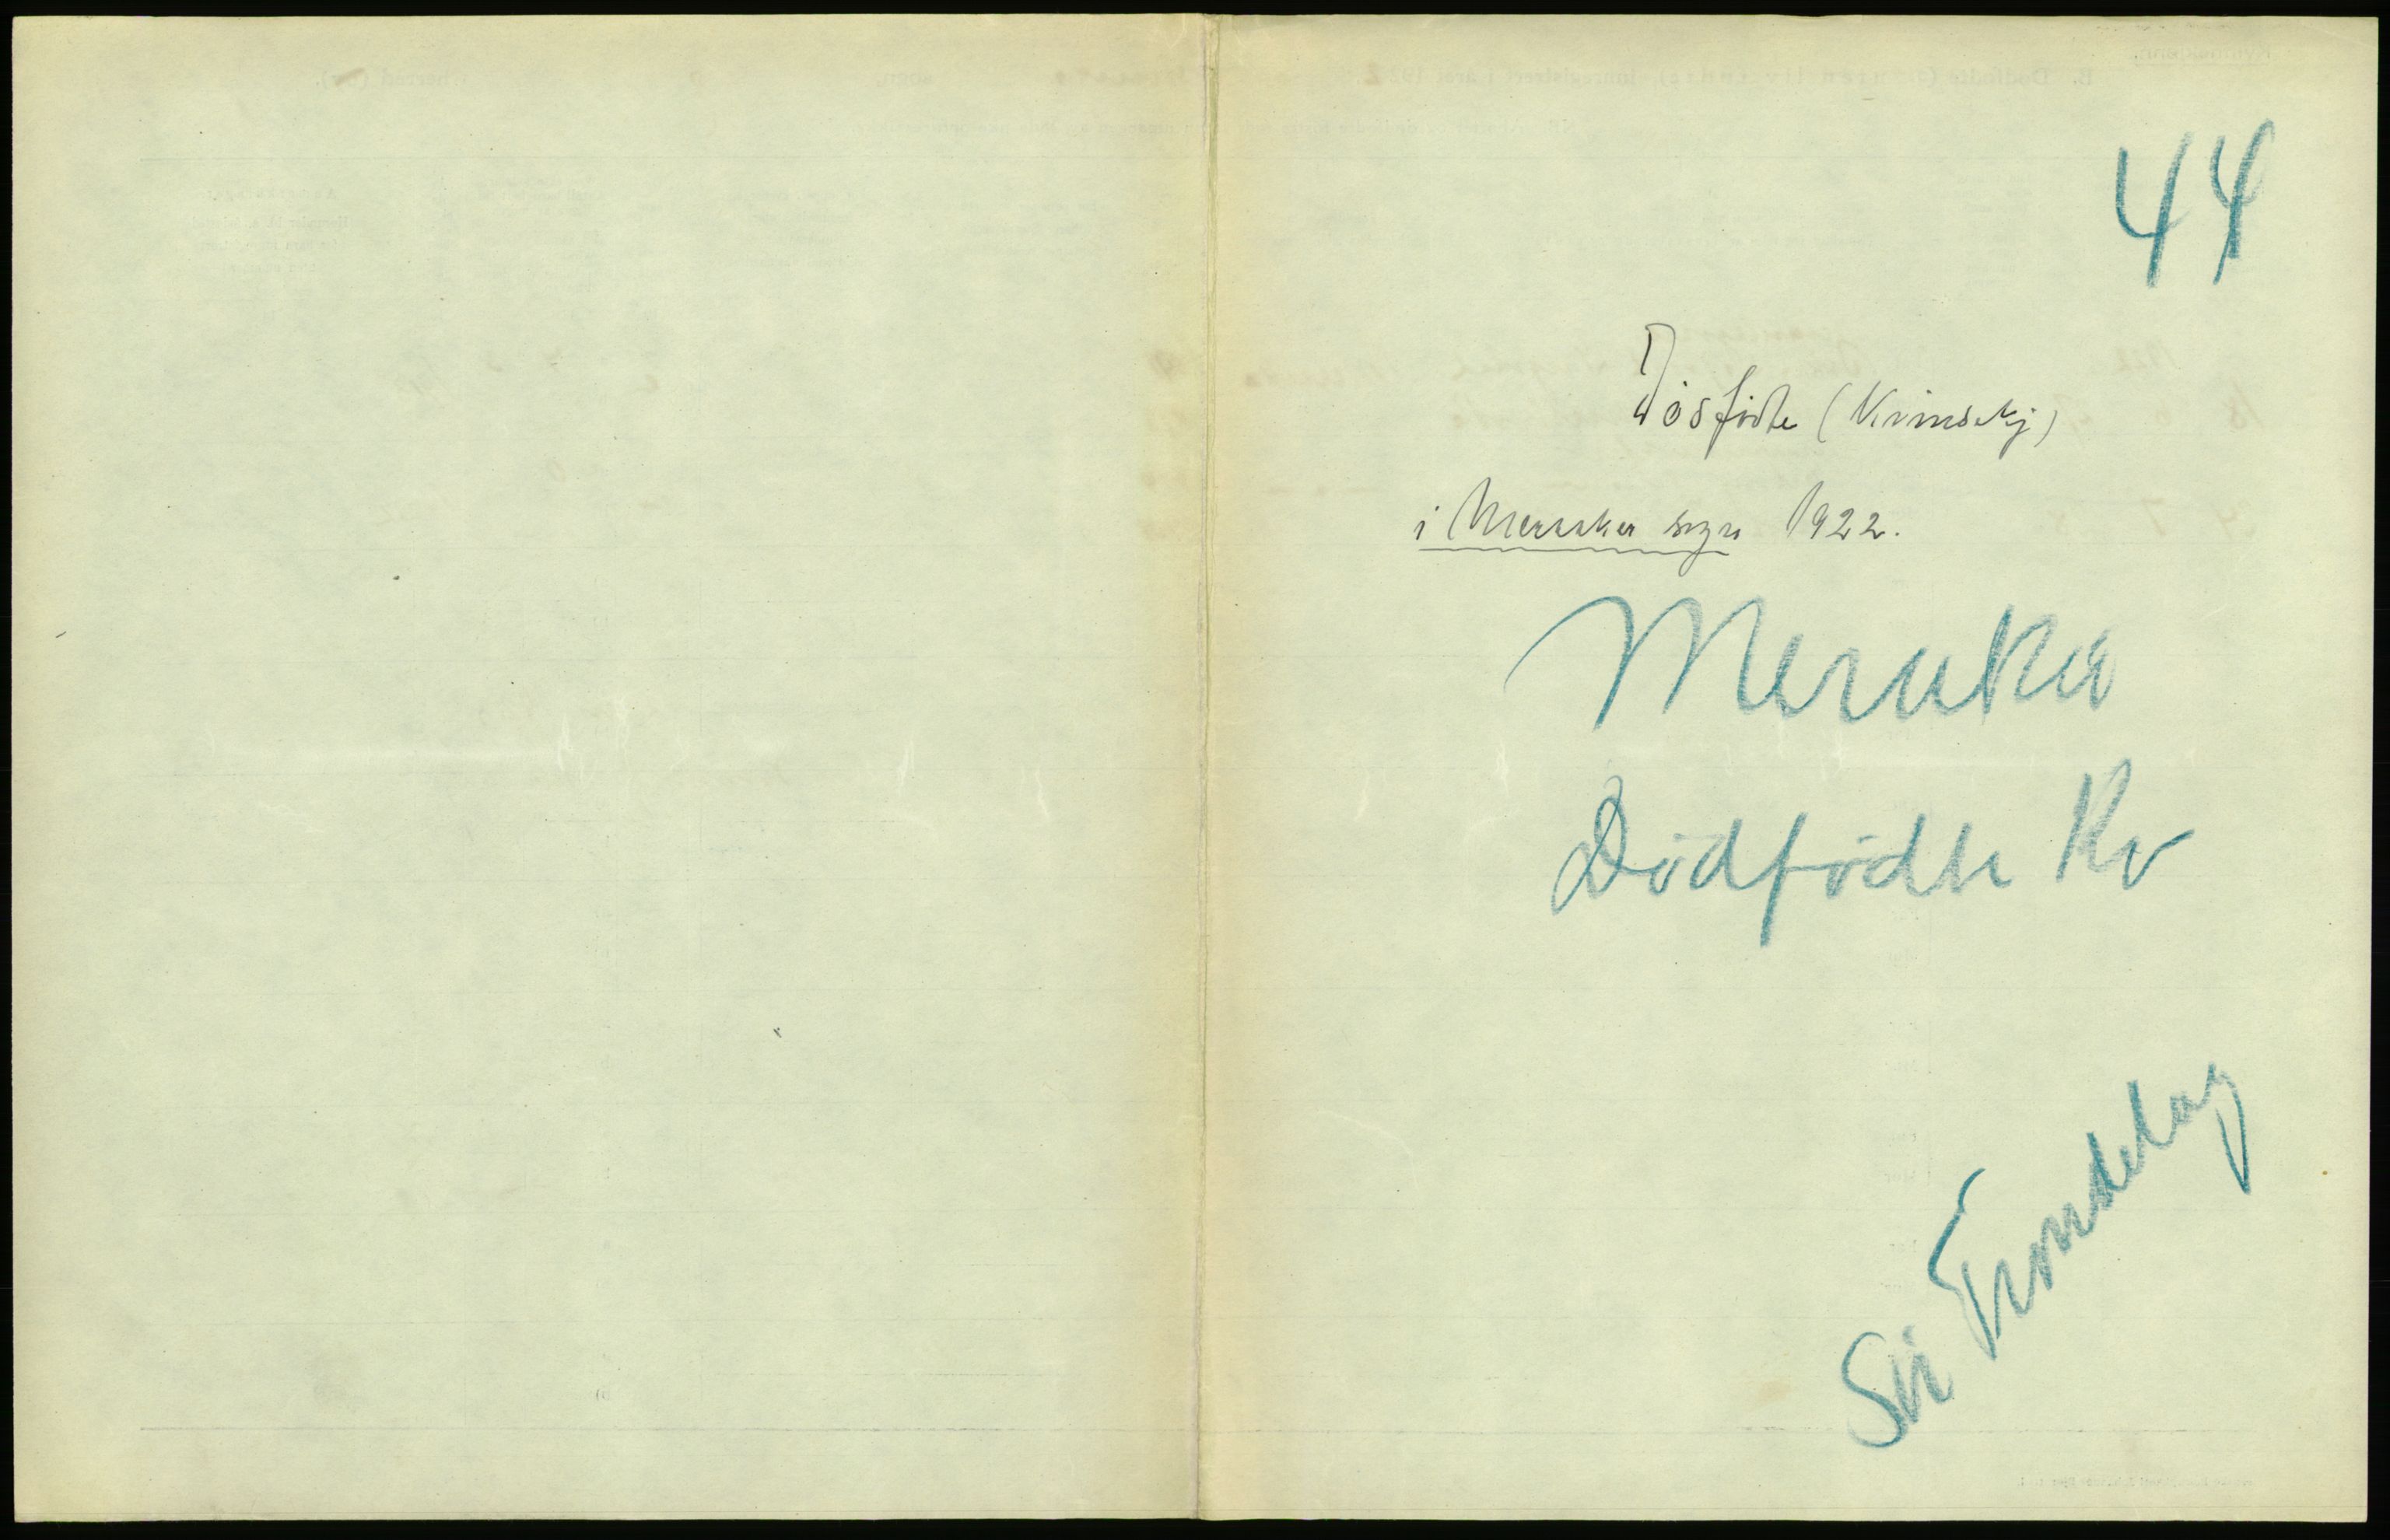 44
Dødfødte (Kvindekj)
i Meraker sogn 1922.
Meraker
Dødfødte Kv
Sør Trøndelag